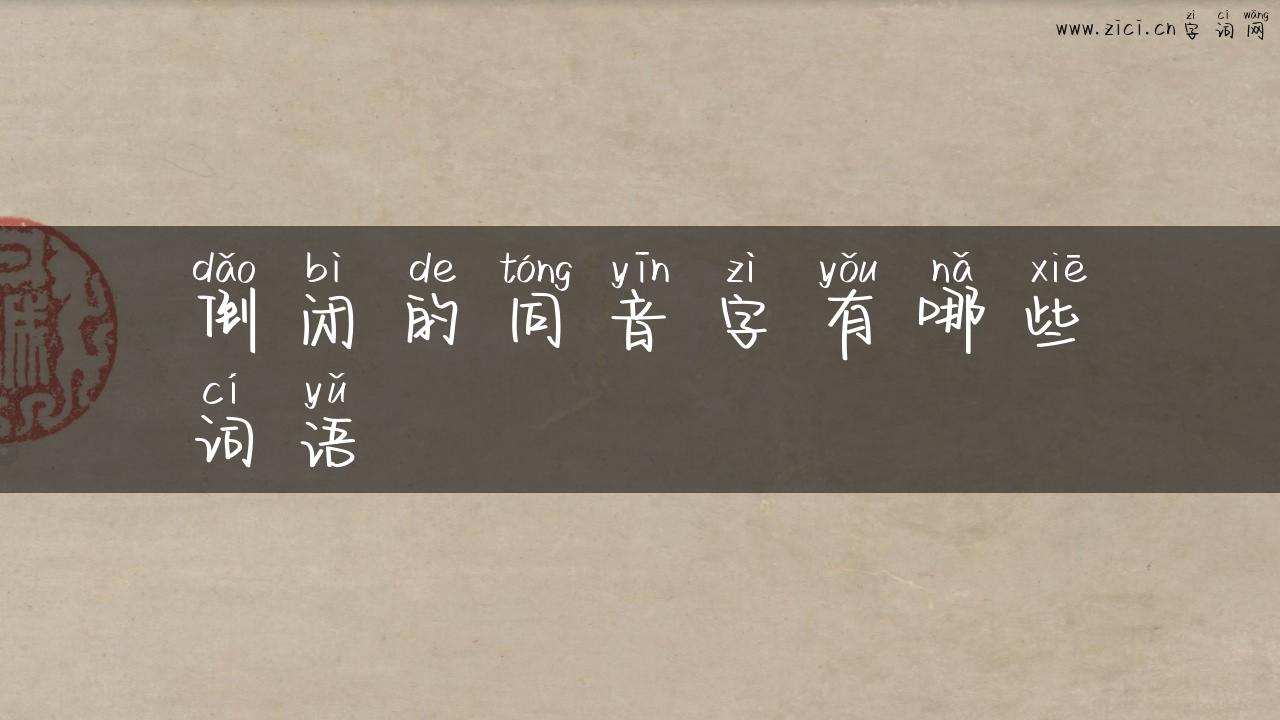 zì cí wǎng
www.zici.cn 字词网
dǎo bì de tóng yīn zì yǒu nǎ xiē
倒闭的同音字有哪些
cí yǔ
词语